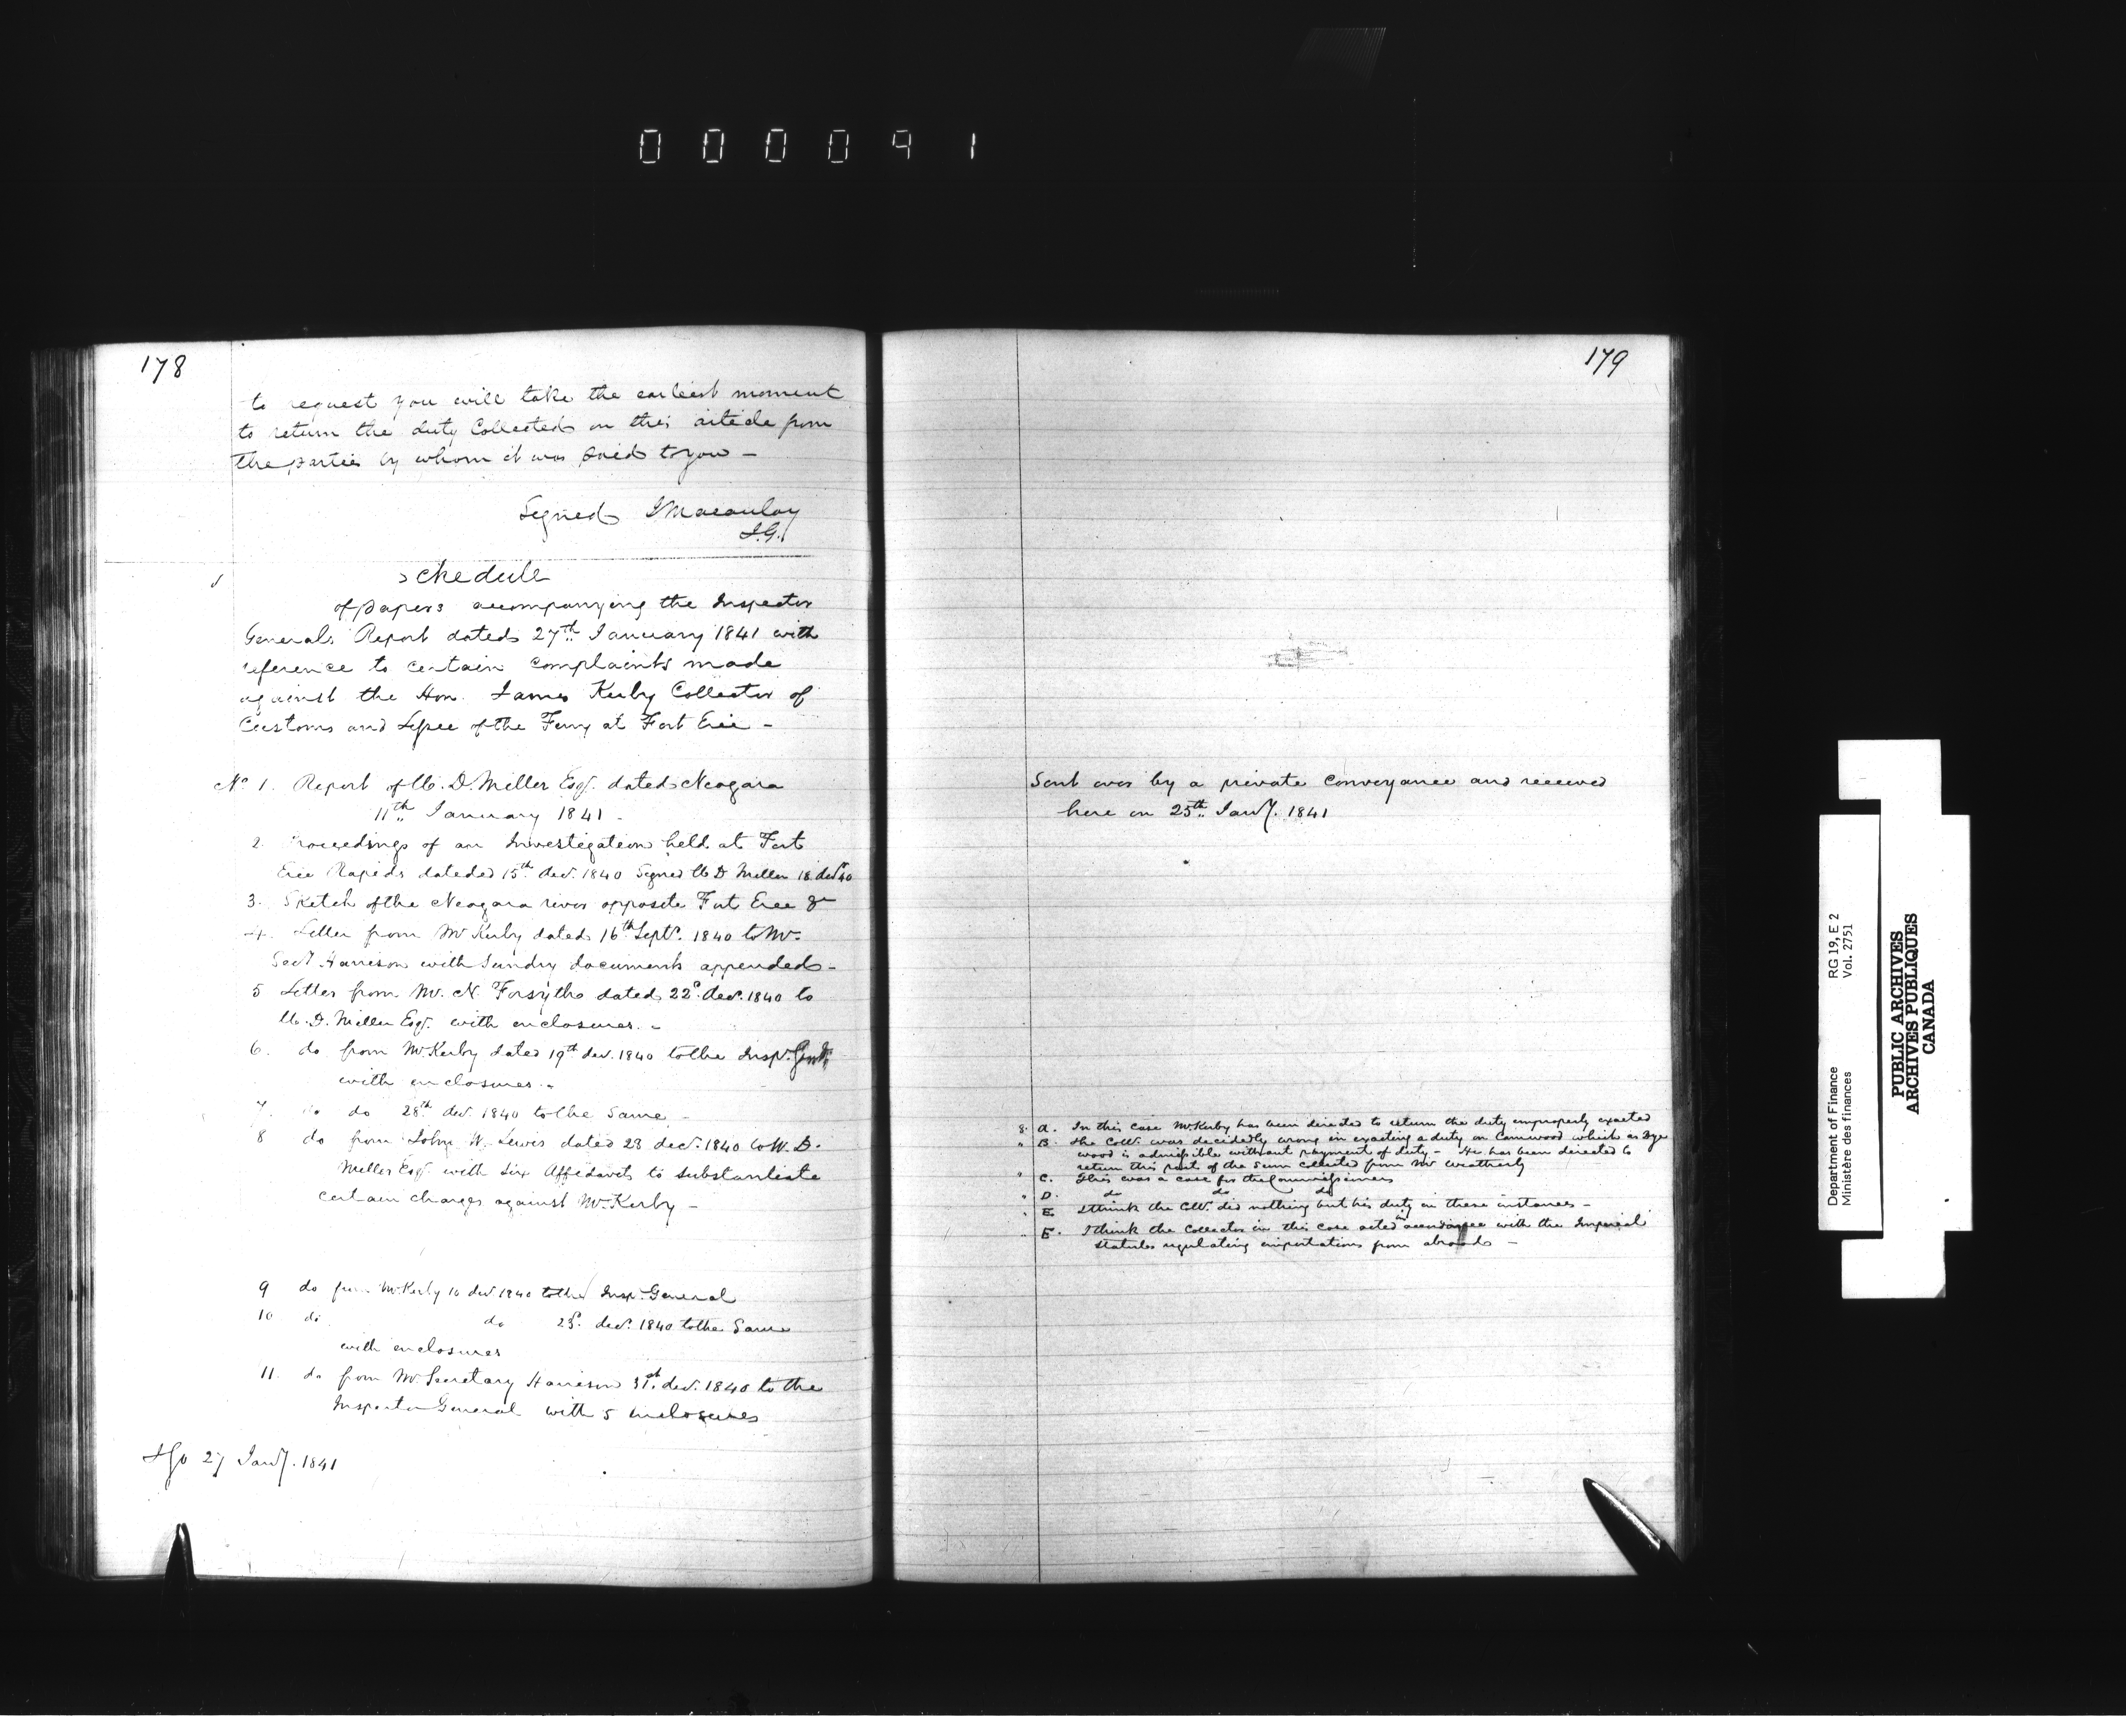 000091
178
to request you will take the earliest moment
to return the duty Collected on this article from
the parties by whom it was paid to you –
Signed J Macaulay
I.G.
Schedule
of papers accompanying the Inspector
Generals Report dated 27th January 1841 with
reference to certain complaints made
against the Hon. James Kerby Collector of
Customs and Lessee of the Ferry at Fort Erie –
No 1. Report of W. D. Miller Esqr. dated Niagara
11th January 1841 –
2. Proceedings of an Investigation held at Fort
Erie Rapids dated 15th decr. 1840 Signed W D Miller 18 decr 40
3. Sketch of the Niagara river opposite Fort Erie &c
4. Letter from Mr Kerby dated 16th Septr. 1840 to Mr.
Secy Harrison with Sundry documents appended –
5 Letter from Mr. N. Forsyth dated 22d. decr. 1840 to
W. D. Miller Esqr. with enclosures. –
6. do from Mr Kerby dated 19th decr. 1840 to the Inspr. Genl.
with enclosures –
7. do do 28th decr 1840 to the Same –
8 do from John W. Lewis dated 23 decr. 1840 to W. D.
Miller Esqr. with six Affidavits to substantiate
certain charges against Mr Kerby –
9 do from Mr Kerby 10 decr 1840 to the Inspr. General
10 do do decr. 1840 to the Same
with enclosures
11. do from Mr. Secretary Harrison 31st. decr. 1840 to the
Inspector General with 5 enclosures
IGO 27 Jany. 1841
179
Sent over by a private Conveyance and received
here on 25th Jany. 1841
8. A. In this case Mr Kerby has been directed to return the duty improperly exacted
" B. the Collr. was decidedly wrong in exacting a duty on Camwood which as Dye
wood is admissible without payment of duty – He has been directed to
return this part of the Sum collected from Mr Weatherly
" C. This was a case for the Commissioners
" D. do do do
" E. I think the Collr. did nothing but his duty in these instances –
" F. I think the Collector in this case acted in accordance with the Imperial
Statutes regulating importations from abroad –
Department of Finance RG 19, E 2
Ministère des finances Vol. 2751
PUBLIC ARCHIVES
ARCHIVES PUBLIQUES
CANADA